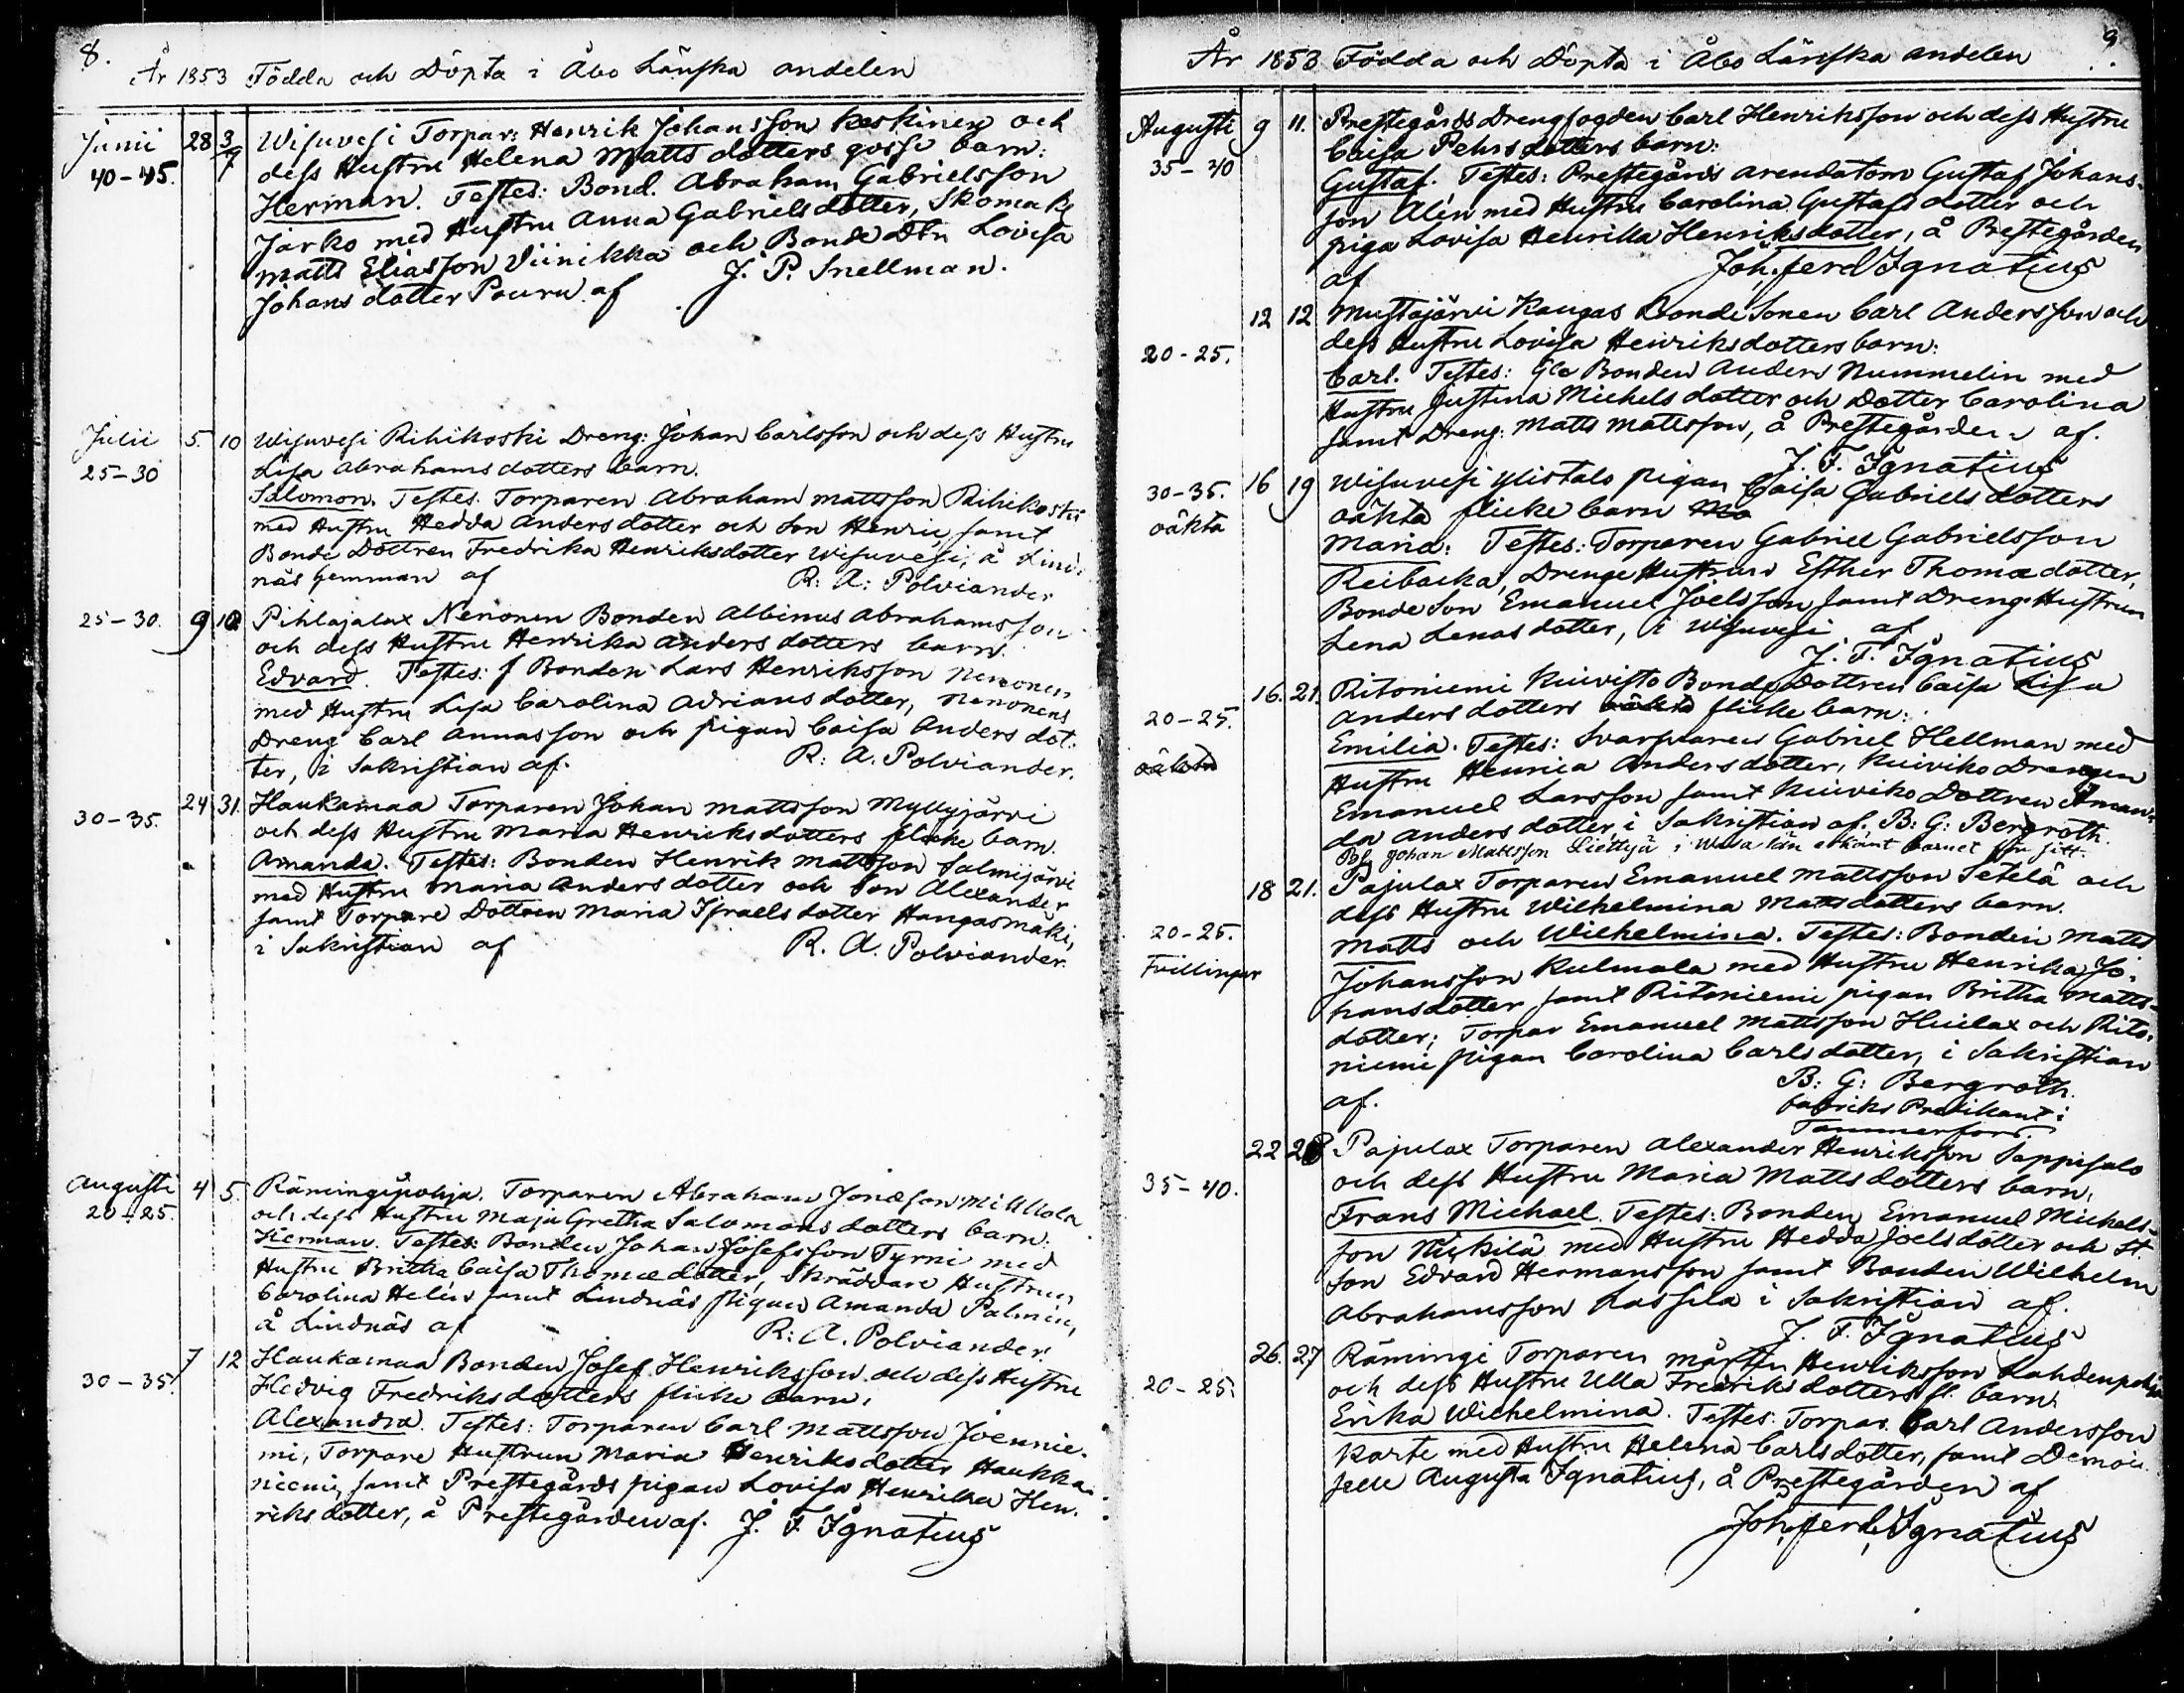 8.
År 1853 Födda och Döpta i Åbo Länska andelen
Junii 28 3/7 Wisuvesi Torpar: Henrik Johansson Keskinen och
40-45. dess Hustru Helena Matts dotters gosse barn:
Herman. Testes: Bond. Abraham Gabrielsson
Järko med Hustru Anna Gabriels dotter, Skomak
Matts Eliasson Viinikka och Bonde Dtr Lovisa
Johans dotter Pouru af J. P. Snellman.
Julii 5. 10 Wisuvesi Rihikoski Dreng: Johan Carlsson och dess Hustru
25-30 Lisa Abrahams dotters barn.
Salomon. Testes. Torparen Abraham Mattsson Rihikoski
med Hustru Hedda Anders dotter och Son Henric, samt
Bonde Dottren Fredrika Henriksdotter Wisuvesi, å Lind-
näs hemman af R: A: Polviander
25-30. 9 10 Pihlajalax Nenonen Bonden Albinus Abrahamsson
och dess Hustru Henrika Anders dotters barn.
Edvard. Testes: f Bonden Lars Henriksson Nenonen
med Hustru Lisa Carolina Adrians dotter, Nenonens
Dreng Carl Annasson och pigan Caisa Anders dot-
ter, i Sakristian af. R: A. Polviander.
30-35. 24 31. Haukamaa Torparen Johan Mattsson Myllyjärvi
och dess Hustru Maria Henriksdotters flicke barn.
Amanda. Testes: Bonden Henrik Mattsson Salmijärvi
med Hustru Maria Anders dotter och Son Alexander
samt Torpare Dottren Maria Israels dotter Hangasmäki,
i Sakristian af R. A. Polviander.
Augusti 4 5. Rämingipohja. Torparen Abraham Jonæson Millola
20-25. och dess Hustru Maja Gretha Salomons dotters barn.
Herman. Testes: Bonden Johan Josefsson Tyrni med
Hustru Britha Caisa Thomæ dotter, Skräddare Hustrun
Carolina Helin samt Lindnäs pigan Amanda Palmin,
å Lindnäs af R: A. Polviander.
30-35. 7 12 Haukamaa Bonden Josef Henriksson och dess Hustru
Hedvig Fredriksdotters flicke barn.
Alexandra. Testes: Torparen Carl Mattsson Joennie-
mi, Torpare Hustrun Maria Henriksdotter Haukka-
niemi, samt Prestegårds pigan Lovisa Henrika Hen-
riks dotter, å Prestegården af. J. F. Ignatius
9.
År 1853 Födda och Döpta i Åbo Länska andelen
Augusti 9 11. Prestegårds Drengfogden Carl Henriksson och dess Hustru
35-40 Caisa Pehrsdotters barn:
Gustaf. Testes: Prestegårds arendatorn Gustaf Johans-
son Alén med Hustru Carolina Gustafs dotter och
piga Lovisa Henrika Henriksdotter, å Prestegården
af Joh. Ferd. Ignatius
12 12 Mustajärvi Kangas Bonde Sonen Carl Andersson och
20-25. dess Hustru Lovisa Henriksdotters barn:
Carl. Testes: Gla Bonden Anders Nummelin med
Hustru Justina Michels dotter och Dotter Carolina
samt Dreng: Matts Mattsson, å Prestegården af.
J. F. Ignatius
30-35. 16 19 Wisuvesi Ylistalo pigan Caisa Gabriels dotters
oäkta oäkta flicke barn Ma
Maria: Testes: Torparen Gabriel Gabrielsson
Reibacka, Drenge Hustrun Esther Thomæ dotter,
Bonde Son Emanuel Joelsson samt Dreng Hustrun
Lena Lenas dotter, i Wisuvesi af
J. F. Ignatius
16. 21. Ritoniemi Kuivisto Bonde Dottren Caisa Lisa
20-25. Anders dotters oäkta flicke barn:
oäkta Emilia. Testes: Svarfvaren Gabriel Hellman med
Hustru Henrica Anders dotter, Kuiviko Drengen
Emanuel Larsson samt Kuiviko Dottren Aman-
da Anders dotter, i Sakristian af. B: G: Bergroth.
Johan Mattsson i Wasa län erkänt barnet för sitt.
18 21. Pajulax Torparen Emanuel Mattsson Setelä och
dess Hustru Wilhelmina Matts dotters barn.
20-25. Matts och Wilhelmina. Testes: Bonden Matts
Tvillingar Johansson Kulmala med Hustru Henrika Jo-
hansdotter samt Ritoniemi pigan Britha Matts-
dotter; Torpar Emanuel Mattsson Huilax och Rito-
niemi pigan Carolina Carls dotter, i Sakristian
af. B: G: Bergroth.
Fabriks Predikant i
Tammerfors.
22 28 Pajulax Torparen Alexander Henriksson Sappisalo
35-40. och dess Hustru Maria Matts dotters barn,
Frans Michael. Testes: Bonden Emanuel Michels-
son Nikkilä med Hustru Hedda Joels dotter och St.
Son Edvard Hermansson samt Bonden Wilhelm
Abrahamsson Lassila i Sakristian af.
J. F. Ignatius
26. 27 Rämingi Torparen Mårten Henriksson Lahdenpohja
20-25. och dess Hustru Ulla Fredriks dotters fl. barn
Erika Wilhelmina. Testes: Torpar. Carl Andersson
Karte med Hustru Helena Carlsdotter, samt Demoi-
selle Augusta Ignatius, å Prestegården af
Joh. Ferd. Ignatius